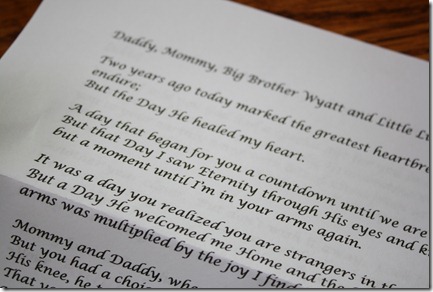 Daddy, Mommy, Big Brother Wyatt and Little
Two years ago today marked the greatest
endure;
But the Day He healed my heart.
A day that began for you a countdown until we are
But that Day I saw Eternity through His eyes and
but a moment until I'm in your arms again.
It was a day you realized you are strangers in
But a Day He welcomed me Home and the
arms was multiplied by the joy I
Mommy and Daddy,
But you had a
His knee, he
That